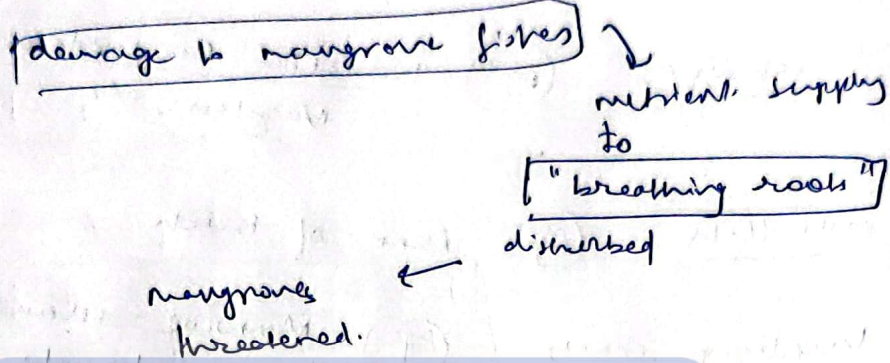 damage to mangrove fishes
nutrient supply
to
"breathing roots"
disturbed
mangroves
threatened.